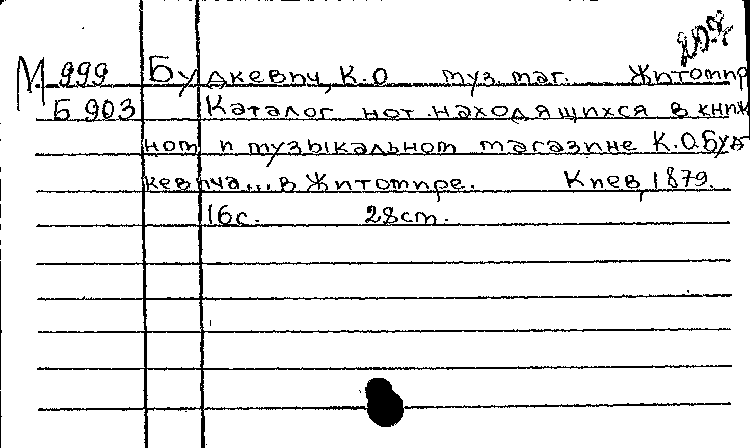 М 999 Будкевич, К.О муз. маг. Житомир
Б 903 Каталог нот находящихся в книж
ном и музыкальном магазине К.О.Буд
кевича... в Житомире. Киев, 1879.
16с. 28cm.